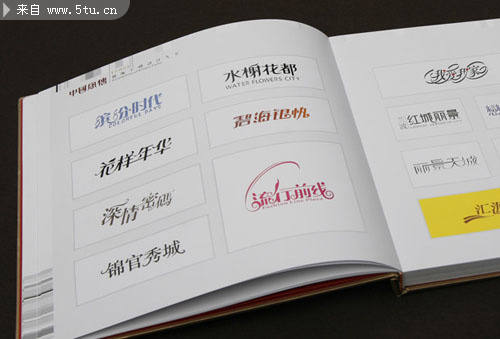 来自 www.5tu.cn
水榭花都
WATER FLOWERS CITY
缤纷时代
COLORFUL DAYS
碧海银帆
花样年华
流行前线
Fashion Line Plaza
深情密码
锦官秀城
我爱我家
红城丽景
丽景天城
汇源